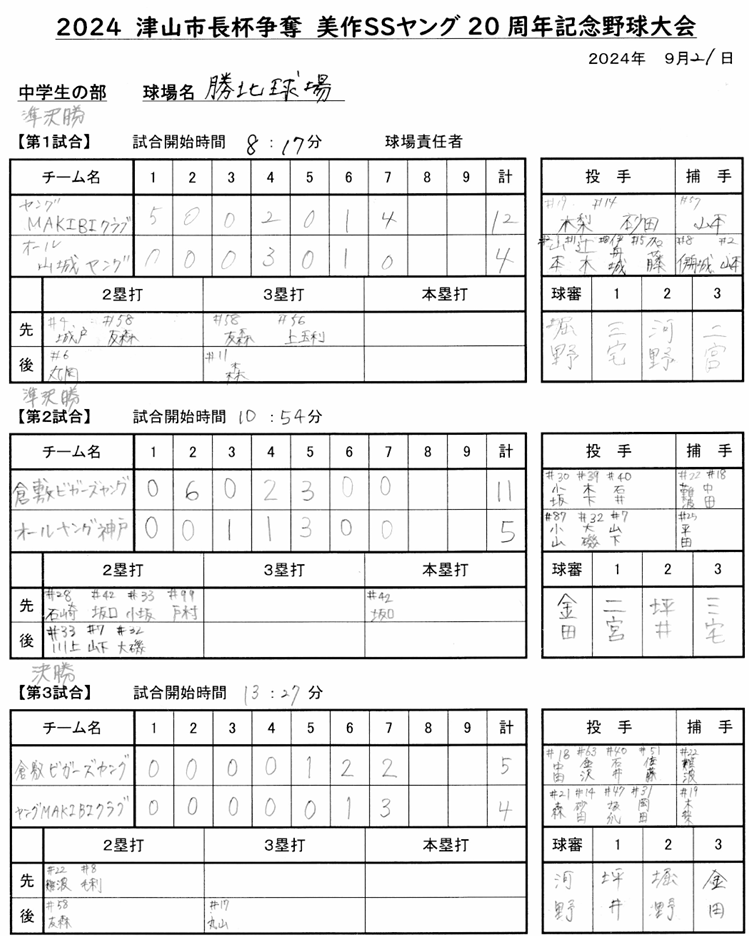 2024 津山市長杯争奪 美作SSヤング20周年記念野球大会
2024年 9月21日
中学生の部 球場名 勝北球場
準決勝
【第1試合】 試合開始時間 8:17分 球場責任者
チーム名 1 2 3 4 5 6 7 8 9 計
ヤング MAKIBIクラブ 5 0 0 2 0 1 4 12
オール 山城ヤング 0 0 0 3 0 1 0 4
2塁打 3塁打 本塁打
先 #4 城戸 #58 友森 #58 友森 #56 上玉利
後 #6 丸岡 #11 森
投手 捕手
#19 木梨 #14 砂田 #57 山本
球審 1 2 3
堀野 三宅 河野 二宮
準決勝
【第2試合】 試合開始時間 10:54分
チーム名 1 2 3 4 5 6 7 8 9 計
倉敷ビガーズヤング 0 6 0 2 3 0 0 11
オールヤング神戸 0 0 1 1 3 0 0 5
2塁打 3塁打 本塁打
先 #28 石崎 #42 坂口 #33 小坂 #99 戸村 #42 坂口
後 #33 川上 #7 山下 #32 大磯
投手 捕手
#30 小坂 #39 木下 #40 石井 #22 難波 #18 中田
#87 小山 #32 大磯 #7 山下 #25 平田
球審 1 2 3
金田 二宮 坪井 三宅
決勝
【第3試合】 試合開始時間 13:27分
チーム名 1 2 3 4 5 6 7 8 9 計
倉敷ビガーズヤング 0 0 0 0 1 2 2 5
ヤングMAKIBIクラブ 0 0 0 0 0 1 3 4
2塁打 3塁打 本塁打
先 #22 難波 #8 毛利
後 #58 友森 #17 丸山
投手 捕手
#18 中田 #63 金沢 #40 石井 #51 佐藤 #22 難波
#21 森 #14 砂田 #47 #31 岡田 #19 木梨
球審 1 2 3
河野 坪井 堀野 金田